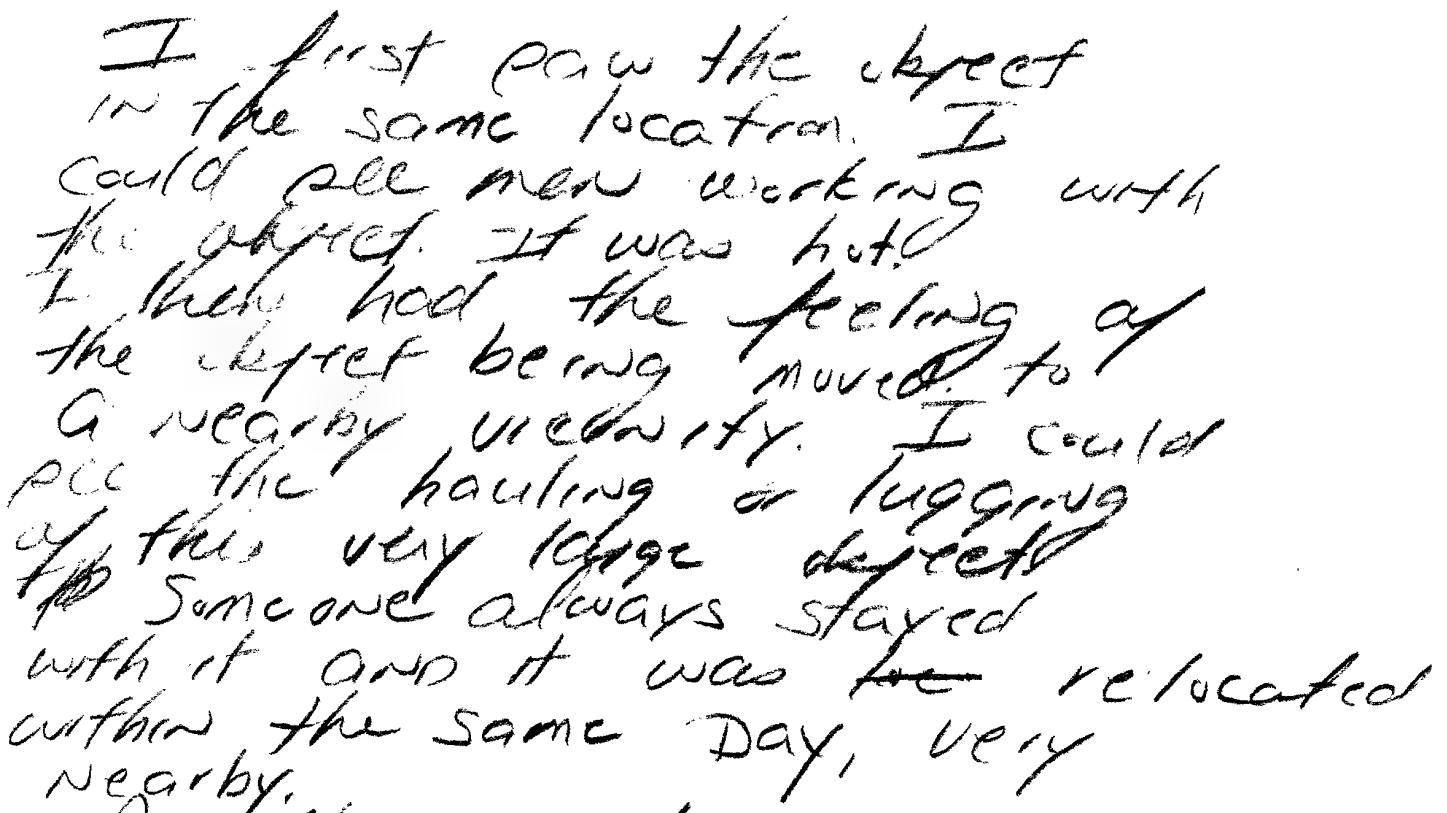 I first saw the object
in the same location. I
could see men working with
the object. It was hot.
I then had the feeling of
the object being moved. to
a nearby vicinity. I could
see the hauling or lugging
of this very large object.
Someone always stayed
with it and it was loc relocated
within the same Day, very
nearby.